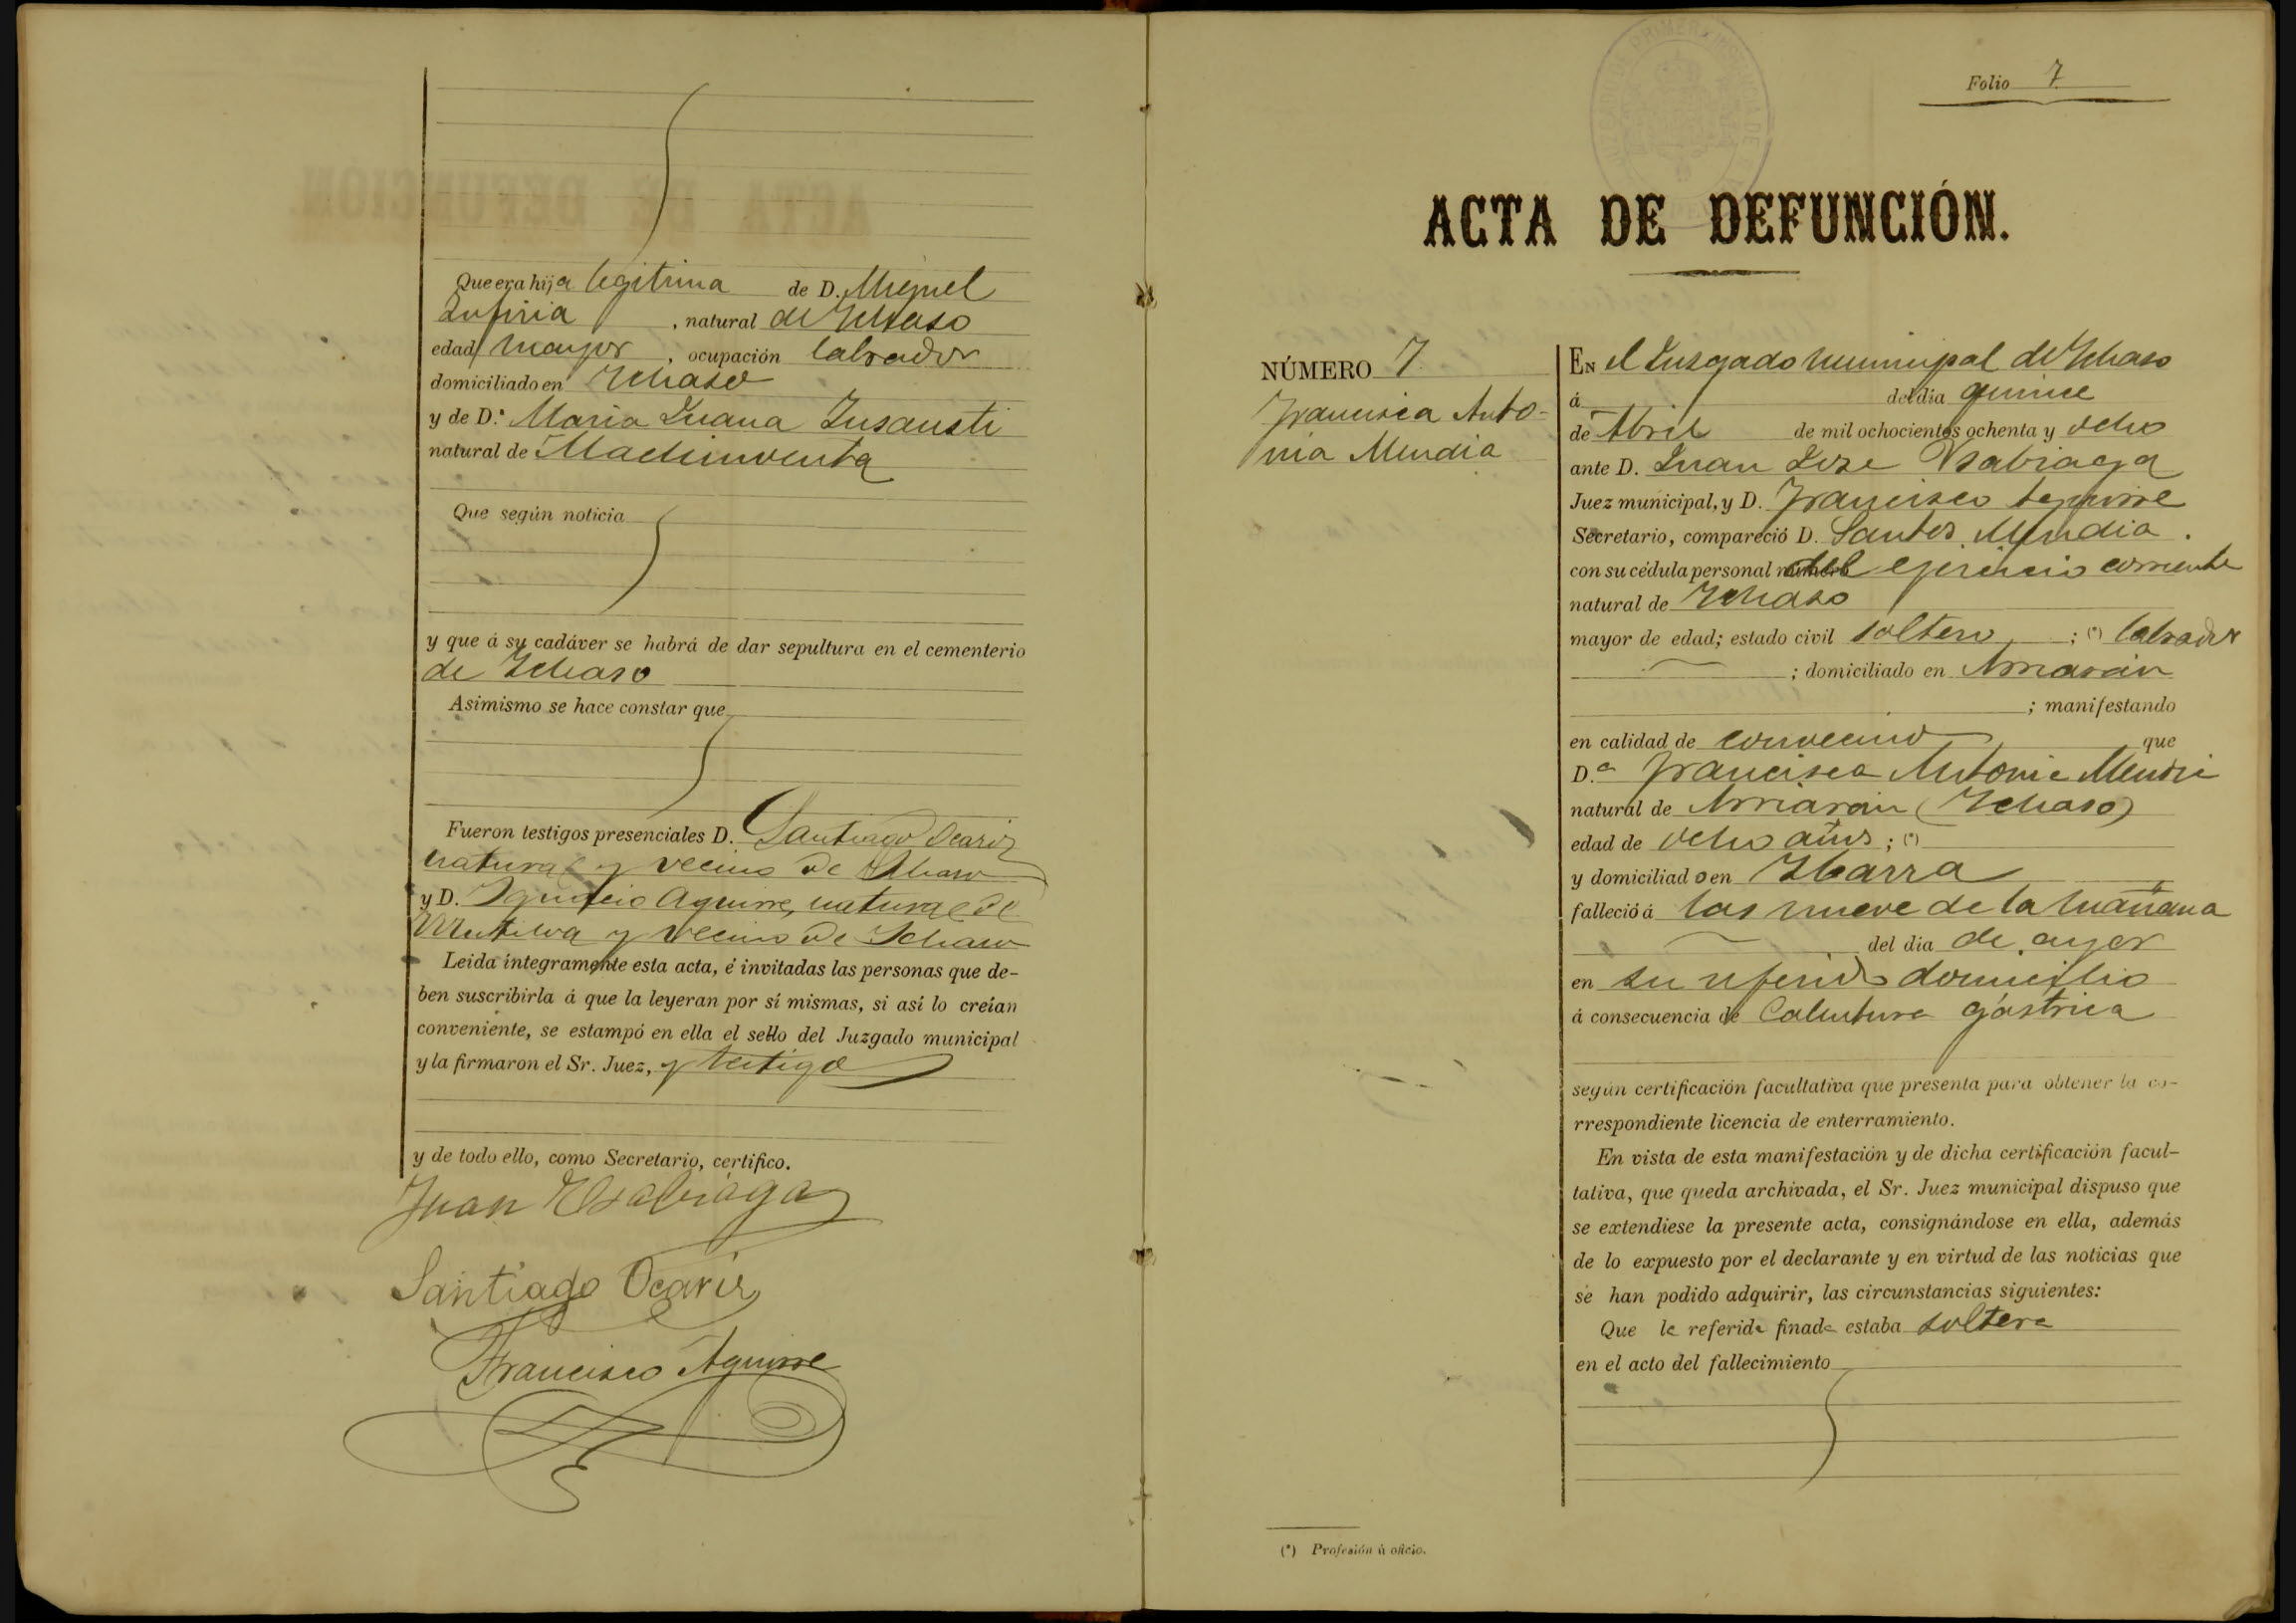 Que era hija legitima de D. Miguel
Zufiria, natural de Ichaso
edad mayor, ocupación labrador
domiciliado en Ichaso
y de D.ª Maria Juana Insausti
natural de Machinventa
Que según noticia
y que á su cadáver se habrá de dar sepultura en el cementerio
de Ichaso
Asimismo se hace constar que
Fueron testigos presenciales D. Santiago Ocariz
natural y vecino de Ichaso
y D. Ignacio Aguirre, natural de
Mutiloa y vecino de Ichaso
Leida íntegramente esta acta, é invitadas las personas que de-
ben suscribirla á que la leyeran por sí mismas, si así lo creían
conveniente, se estampó en ella el sello del Juzgado municipal
y la firmaron el Sr. Juez, y testigo
y de todo ello, como Secretario, certifico.
Juan Usabiaga
Santiago Ocariz
Francisco Aguirre
Folio 7
ACTA DE DEFUNCIÓN.
NÚMERO 7
Francisca Anto-
nia Mendia
EN el Juzgado municipal de Ichaso
á del dia quince
de Abril de mil ochocientos ochenta y ocho
ante D. Juan Jose Usabiaga
Juez municipal, y D. Francisco Aguirre
Secretario, compareció D. Santos Mendia
con su cédula personal número del ejercicio corriente
natural de Ichaso
mayor de edad; estado civil soltero; (*) labrador
; domiciliado en Arriarán
; manifestando
en calidad de convecino que
D.ª Francisca Antonia Mendia
natural de Arriarán (Ichaso)
edad de ocho años; (*)
y domiciliado en Ybarra
falleció á las nueve de la mañana
del dia de ayer
en su referido domicilio
á consecuencia de Calentura gástrica
según certificación facultativa que presenta para obtener la co-
rrespondiente licencia de enterramiento.
En vista de esta manifestación y de dicha certificación facul-
tativa, que queda archivada, el Sr. Juez municipal dispuso que
se extendiese la presente acta, consignándose en ella, además
de lo expuesto por el declarante y en virtud de las noticias que
se han podido adquirir, las circunstancias siguientes:
Que la referida finada estaba soltera
en el acto del fallecimiento
(*) Profesión ú oficio.